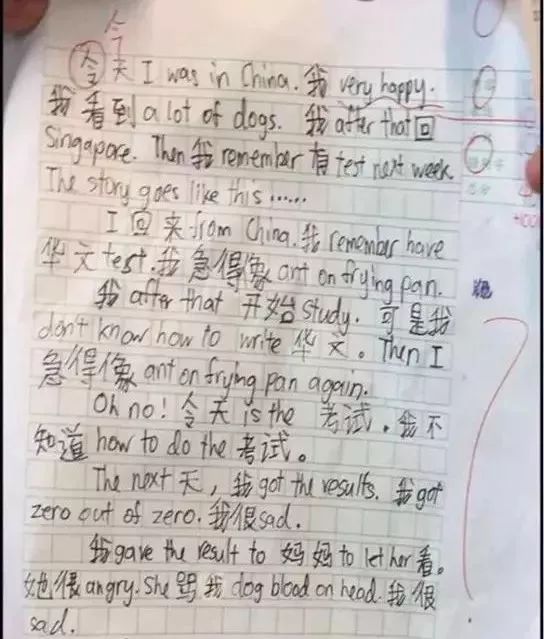 今
令天 I was in China. 我 very happy.
我看到 a lot of dogs. 我 after that 回
Singapore. Then 我 remember 有 test next week.
The story goes like this ......
I 回来 from China. 我 remember have
华文 test. 我急得像 ant on frying pan.
我 after that 开始 study. 可是我
don't know how to write 华文。Then I
急得像 ant on frying pan again.
Oh no! 令天 is the 考试. 我不
知道 how to do the 考试。
The next 天, 我 got the results. 我 got
zero out of zero. 我很 sad.
我 gave the result to 妈妈 to let her 看。
她很 angry. She 骂我 dog blood on head. 我很
sad.